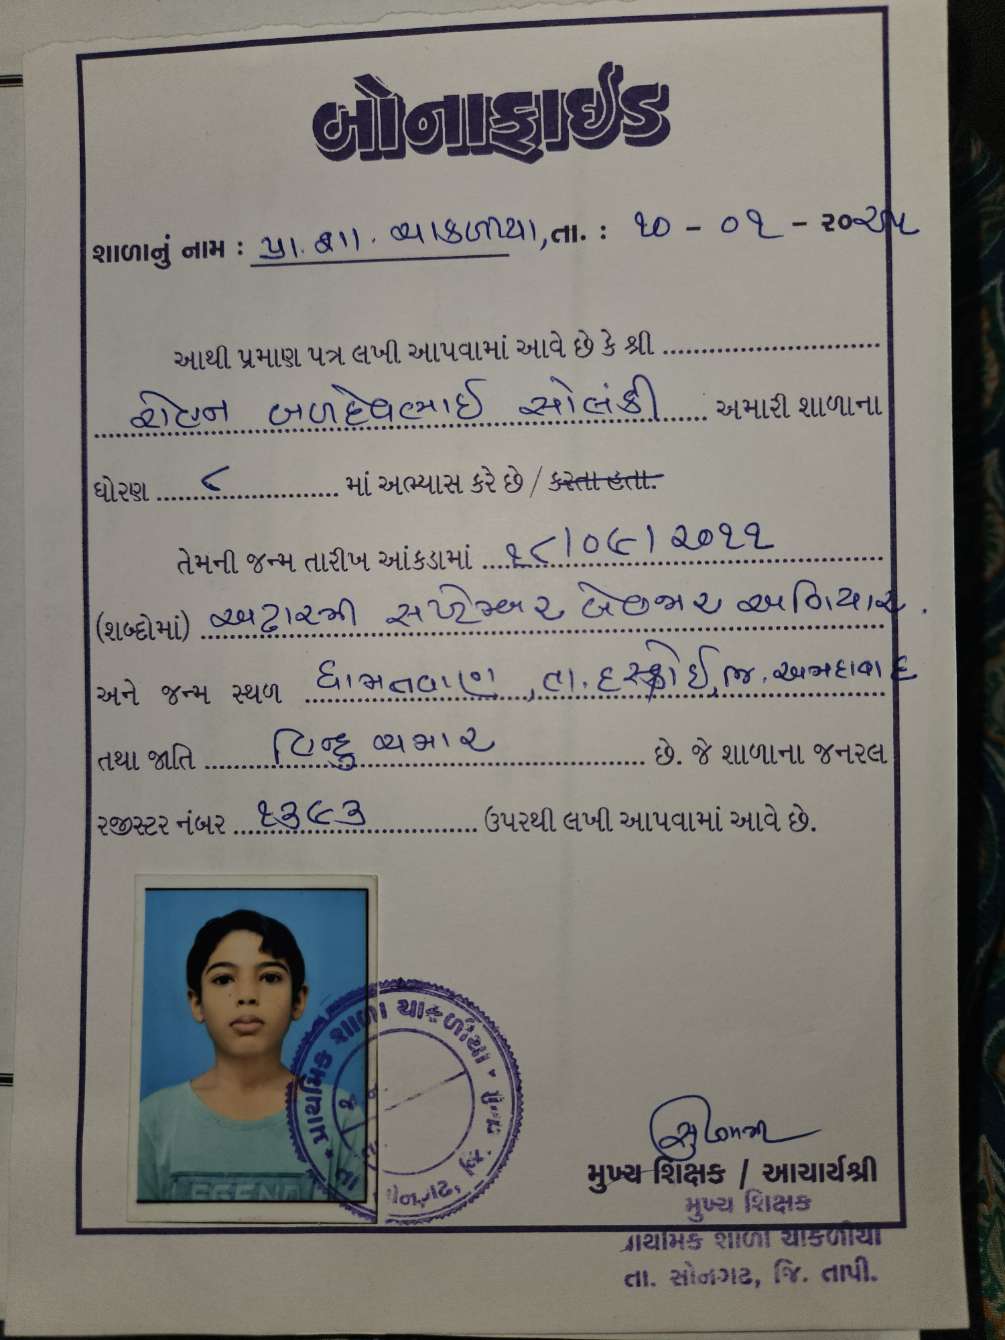 બોનાફાઈડ
શાળાનું નામ : પ્રા. શાળા. ચાકળીયા, તા. : ૧૦ - ૦૧ - ૨૦૨૫
આથી પ્રમાણ પત્ર લખી આપવામાં આવે છે કે શ્રી
રોહન બળદેવભાઈ સોલંકી અમારી શાળાના
ધોરણ ૮ માં અભ્યાસ કરે છે / કરતા હતા.
તેમની જન્મ તારીખ આંકડામાં ૧૮/૦૯/૨૦૧૧
(શબ્દોમાં) અઢારમી સપ્ટેમ્બર બેહજાર અગિયાર.
અને જન્મ સ્થળ ધામતવાણ, તા. દસ્ક્રોઈ, જિ. અમદાવાદ
તથા જાતિ હિન્દુ ચમાર છે. જે શાળાના જનરલ
રજીસ્ટર નંબર ૧૩૯૩ ઉપરથી લખી આપવામાં આવે છે.
પ્રાથમિક શાળા ચાકળીયા
મુખ્ય શિક્ષક / આચાર્યશ્રી
મુખ્ય શિક્ષક
પ્રાથમિક શાળા ચાકળીયા
તા. સોનગઢ, જિ. તાપી.